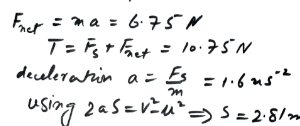 Fnet = ma = 6.75 N
T = Fs + Fnet = 10.75 N
deceleration a = Fs/m = 1.6 ms⁻²
using 2aS = v² - u² ⇒ S = 2.81m